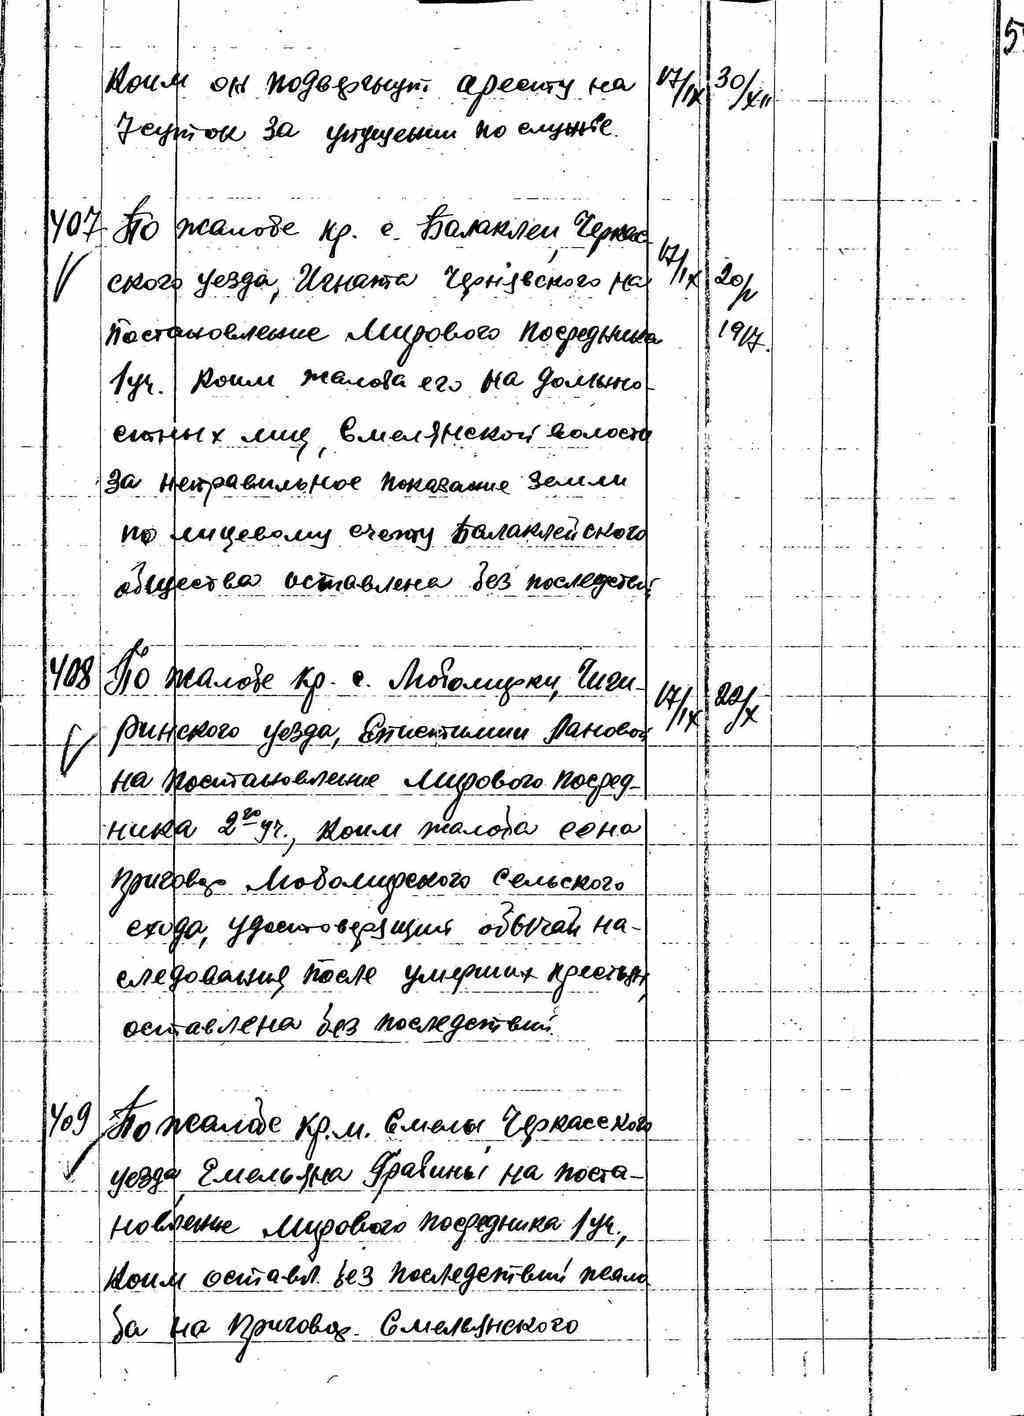 5
Коим он подвергнут аресту на 17/IX 30/XII
7 суток за упущении по службе.
407 По жалобе кр. с. Балаклеи, Черкас-
ского уезда, Игната Чернявского на 17/IX 20/V
постановление Мирового Посредника 1917.
1 уч. коим жалоба его на должно-
стных лиц, Смелянской волости
за неправильное показание земли
по лицевому счету Балаклейского
общества оставлена без последствий
408 По жалобе кр. с. Любомирки, Чиги- 17/IX 22/X
ринского уезда, Епистимии Лановой
на постановление Мирового посред-
ника 2го уч., коим жалоба ее на
приговор Любомирского сельского
схода, удостоверящий обычай на-
следования после умерших крестьян,
оставлена без последствий.
409 По жалобе кр. м. Смелы Черкасского
уезда, Емельяна Грабины на поста-
новление Мирового посредника 1 уч.,
коим оставл. без последствий жало
ба на приговор. Смелянского